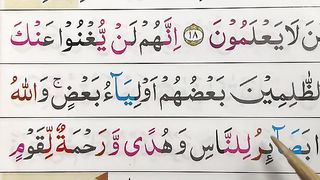 نَ لَا يَعْلَمُونَ ۝١٨ اِنَّهُمْ لَنْ يُّغْنُوْا عَنْكَ
لظّٰلِمِيْنَ بَعْضُهُمْ اَوْلِيَآءُ بَعْضٍ ۚ وَاللّٰهُ
ا بَصَآئِرُ لِلنَّاسِ وَهُدًى وَّرَحْمَةٌ لِّقَوْمٍ